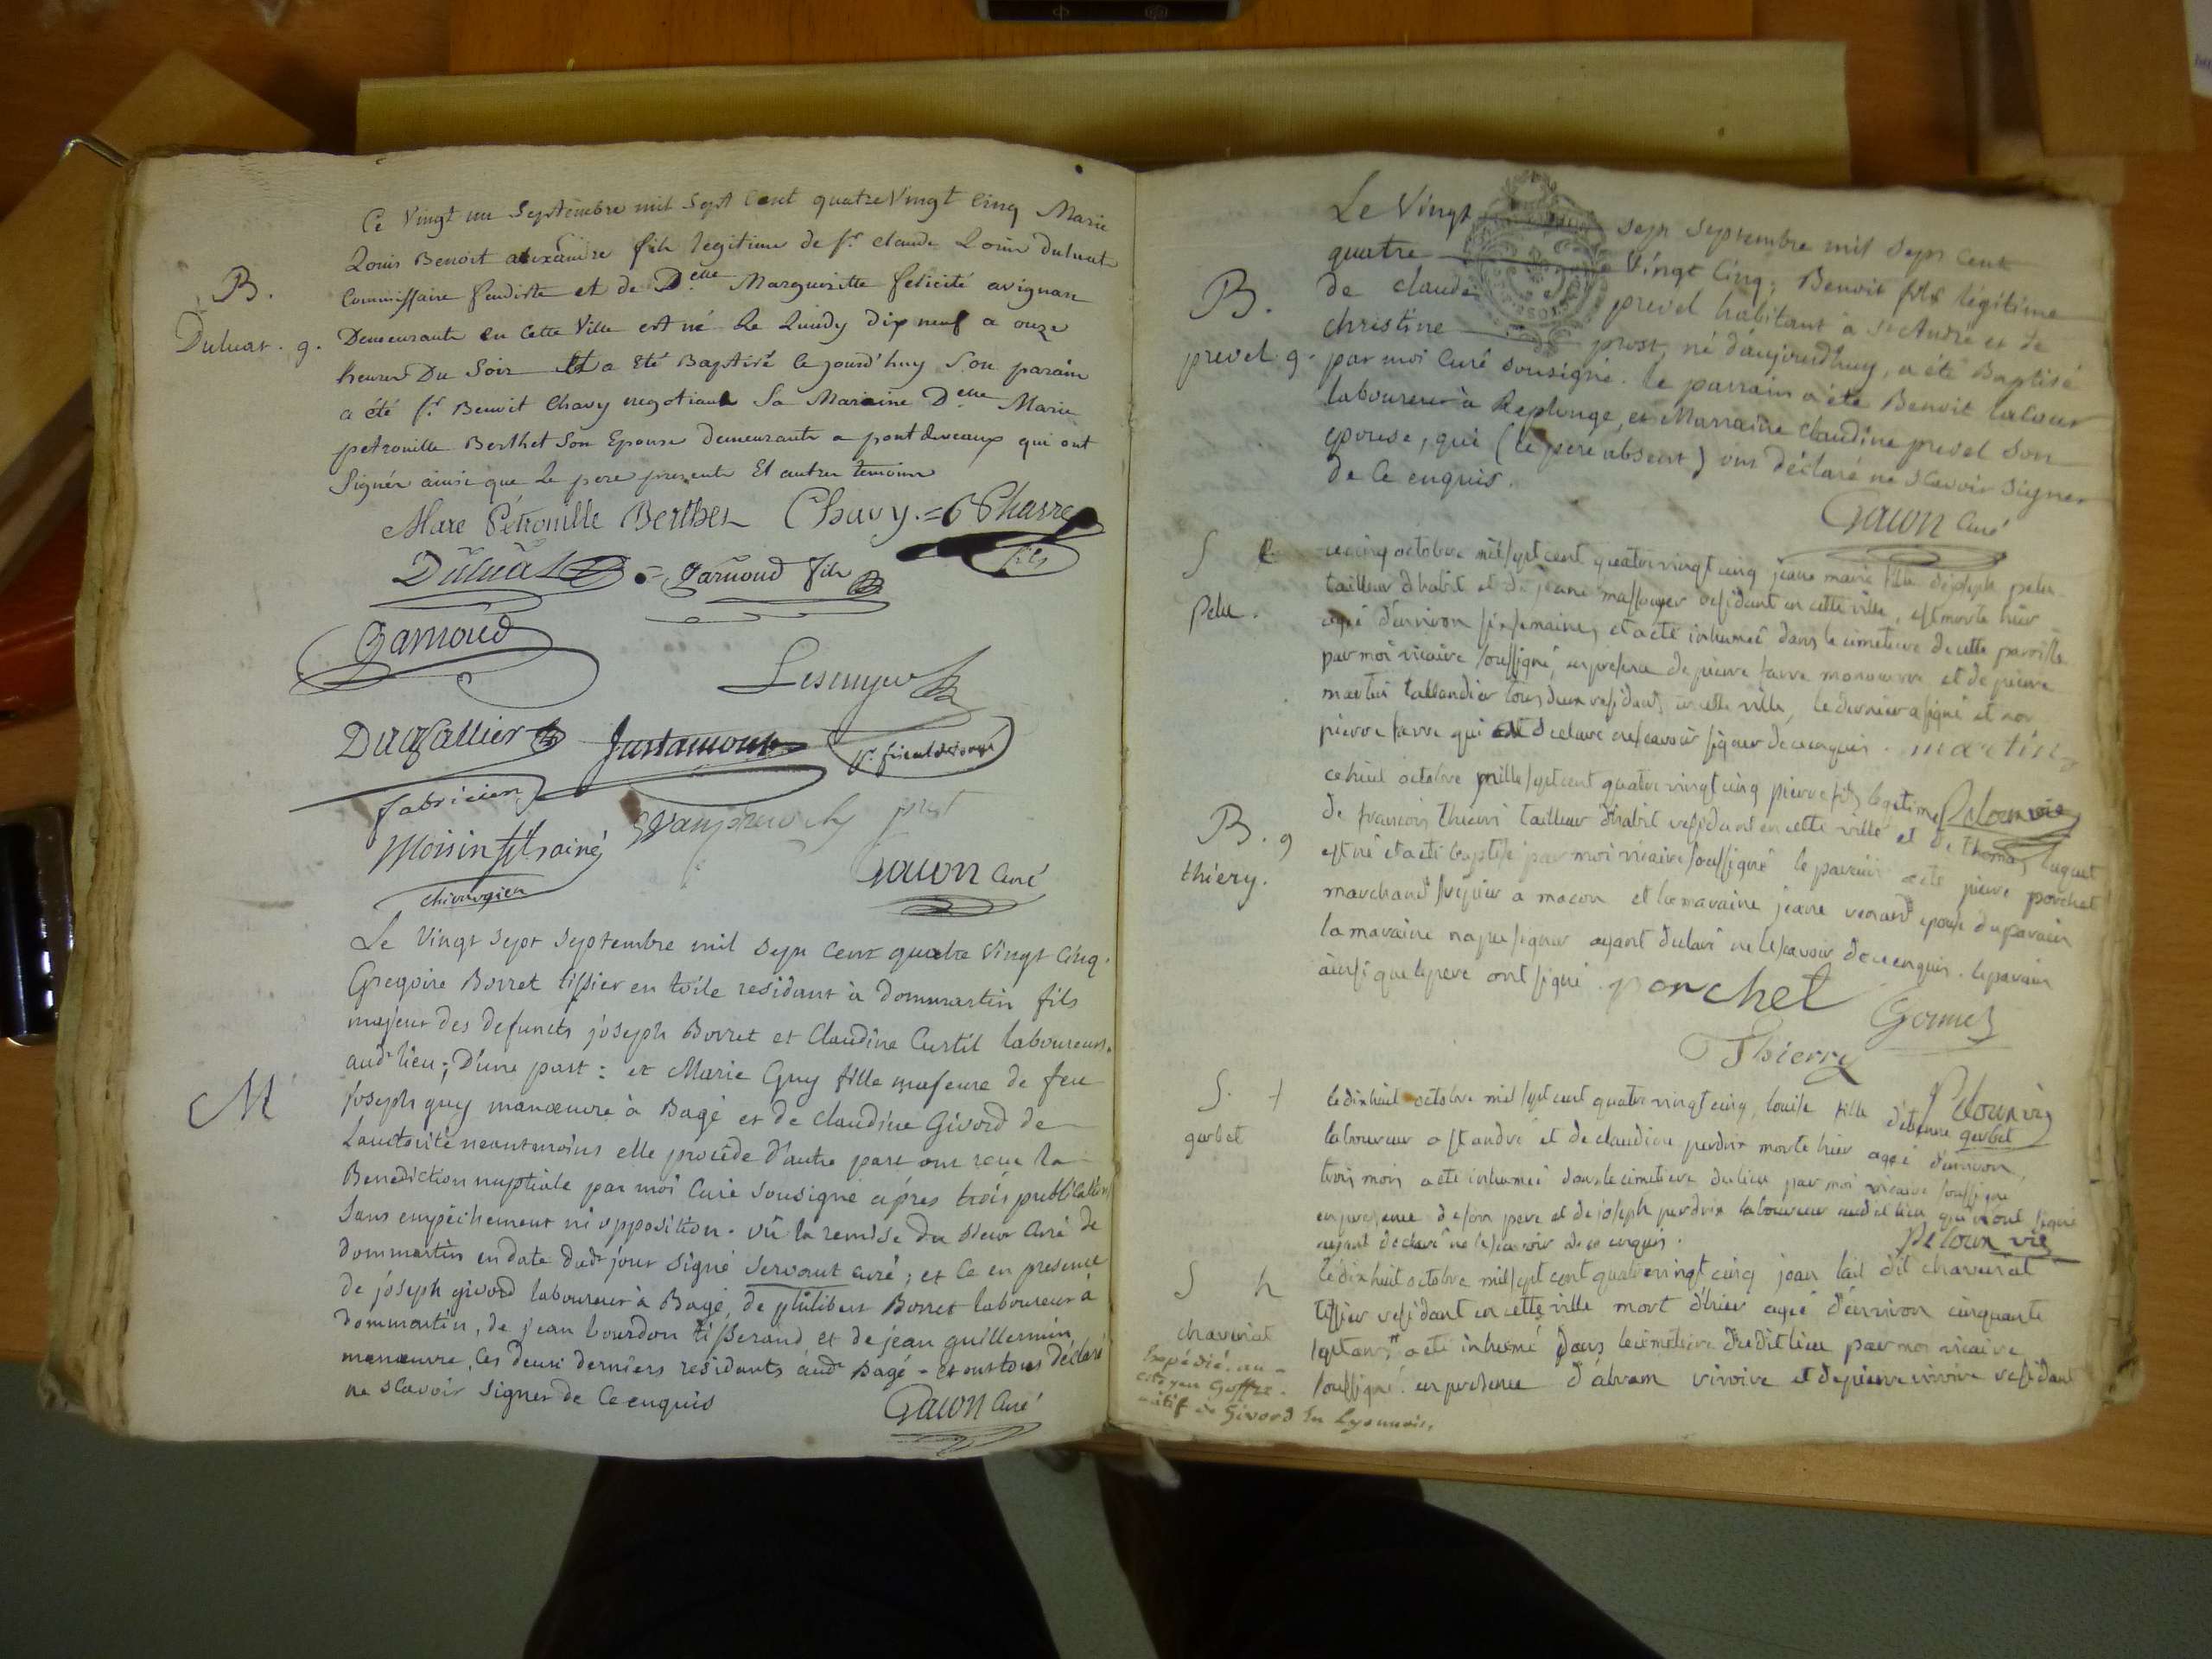 B.
Duluat. g.
Ce Vingt un Septembre mil Sept Cent quatre Vingt Cinq Marie
Louis Benoit alexandre fils legitime de sr. claude Louis Duluat
Commissaire feudiste et de Delle Margueritte felicité avignan
Demeurants en Cette Ville est né Le Lundy dix neuf a onze
heures Du Soir Et a été Baptisé Ce jourd'huy Son parain
a été sr. Benoit Chavy negotiant Sa Maraine Delle Marie
petronille Berthet Son Epouse demeurants a pontdevaux qui ont
Signés ainsi que Le pere present Et autres temoins
Marie Pétronille Berthet Chavy. = Pharre
fils
Duluat = Jarnoud fils
Jarnoud
Duravallier Justamont pr. fiscal
fabricien
Moisin fils ainé
chirurgien
Gacon Curé
M
Le Vingt Sept Septembre mil Sept Cent quatre Vingt Cinq.
Gregoire Borret tissier en toile residant à Dommartin fils
majeur des defuncts joseph Borret et Claudine Curtil laboureurs
audt lieu; D'une part: et Marie Guy fille majeure de feu
joseph guy manoeuvre à Bagé et de claudine Givord de
Lauctorité neantmoins elle procède d'autre part ont reçu la
Benediction nuptiale par moi Curé Sousigné après trois publications
Sans empêchement ni opposition. Vû la remise du Sieur Curé de
Dommartin en date dudt jour Signé Servant curé; et Ce en presence
de joseph givord laboureur à Bagé, de philibert Borret laboureur à
Dommartin, de jean bourdon tisserand et de jean guillermin
manoeuvre, les deux derniers residants audt Bagé - et ont tous déclaré
ne sçavoir Signer de Ce enquis
Gacon Curé
B.
prevel g.
Le Vingt Sept Septembre mil Sept Cent
quatre Vingt Cinq, Benoit fils légitime
de claude prevel habitant à St André et de
christine prost, né d'aujourd'huy, a été Baptisé
par moi Curé Sousigné. le parrain a été Benoit
laboureur à Replonge, et Marraine claudine prevel Son
epouse, qui (le pere absent) ont déclaré ne sçavoir Signer
de Ce enquis.
Gacon Curé
S
Pelu.
ce cinq octobre mil sept cent quatre vingt cinq jeane marie fille de joseph pelu
tailleur d'habit et de jeane residant en cette ville, est morte hier
agée d'environ six semaines et a eté inhumeé dans le cimetiere de cette paroisse
par moi vicaire soussigné, en presence de pierre favre manoeuvre et de pierre
martin tallandier tous deux residants en cette ville, le dernier a signé et non
pierre favre qui a declare ne scavoir signer de ce enquis. martin
Peloux vic
B. g
thiery.
ce huit octobre mille sept cent quatre vingt cinq pierre fils legitime
de francois thierri tailleur d'habit residant en cette ville et de
est né et a eté baptisé par moi vicaire soussigné le parain a eté pierre porchet
marchand a macon et la maraine jeane epouse du parain
la maraine n'a pu signer ayant declaré ne le scavoir de ce enquis. le parain
ainsi que le pere ont signé. porchet
Thierry
Peloux vic
S. +
gurbet
le dix huit octobre mil sept cent quatre vingt cinq, louise fille d'etienne gurbet
laboureur a st andré et de claudine perdrix morte hier ageé d'environ
trois mois a eté inhumeé dans le cimetiere du lieu par moi vicaire soussigné
en presence de son pere et de joseph perdrix laboureur audit lieu qui n'ont signé
ayant declaré ne le scavoir de ce enquis.
Peloux vic
S h
chavuriat
le dix huit octobre mil sept cent quatre vingt cinq jean dit chavuriat
tissier residant en cette ville mort d'hier ageé d'environ cinquante
sept ans a eté inhumé dans le cimetiere dudit lieu par moi vicaire
soussigné. en presence d'abram vivive et de pierre vivive residant
Expédié au
citoyen
natif de Givord En Lyonnois.